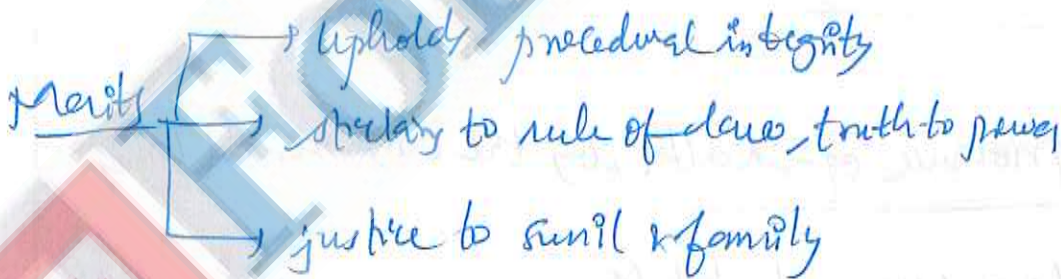 Merits → Upholds procedural integrity
→ sticking to rule of law, truth to power
→ justice to Sunil & family